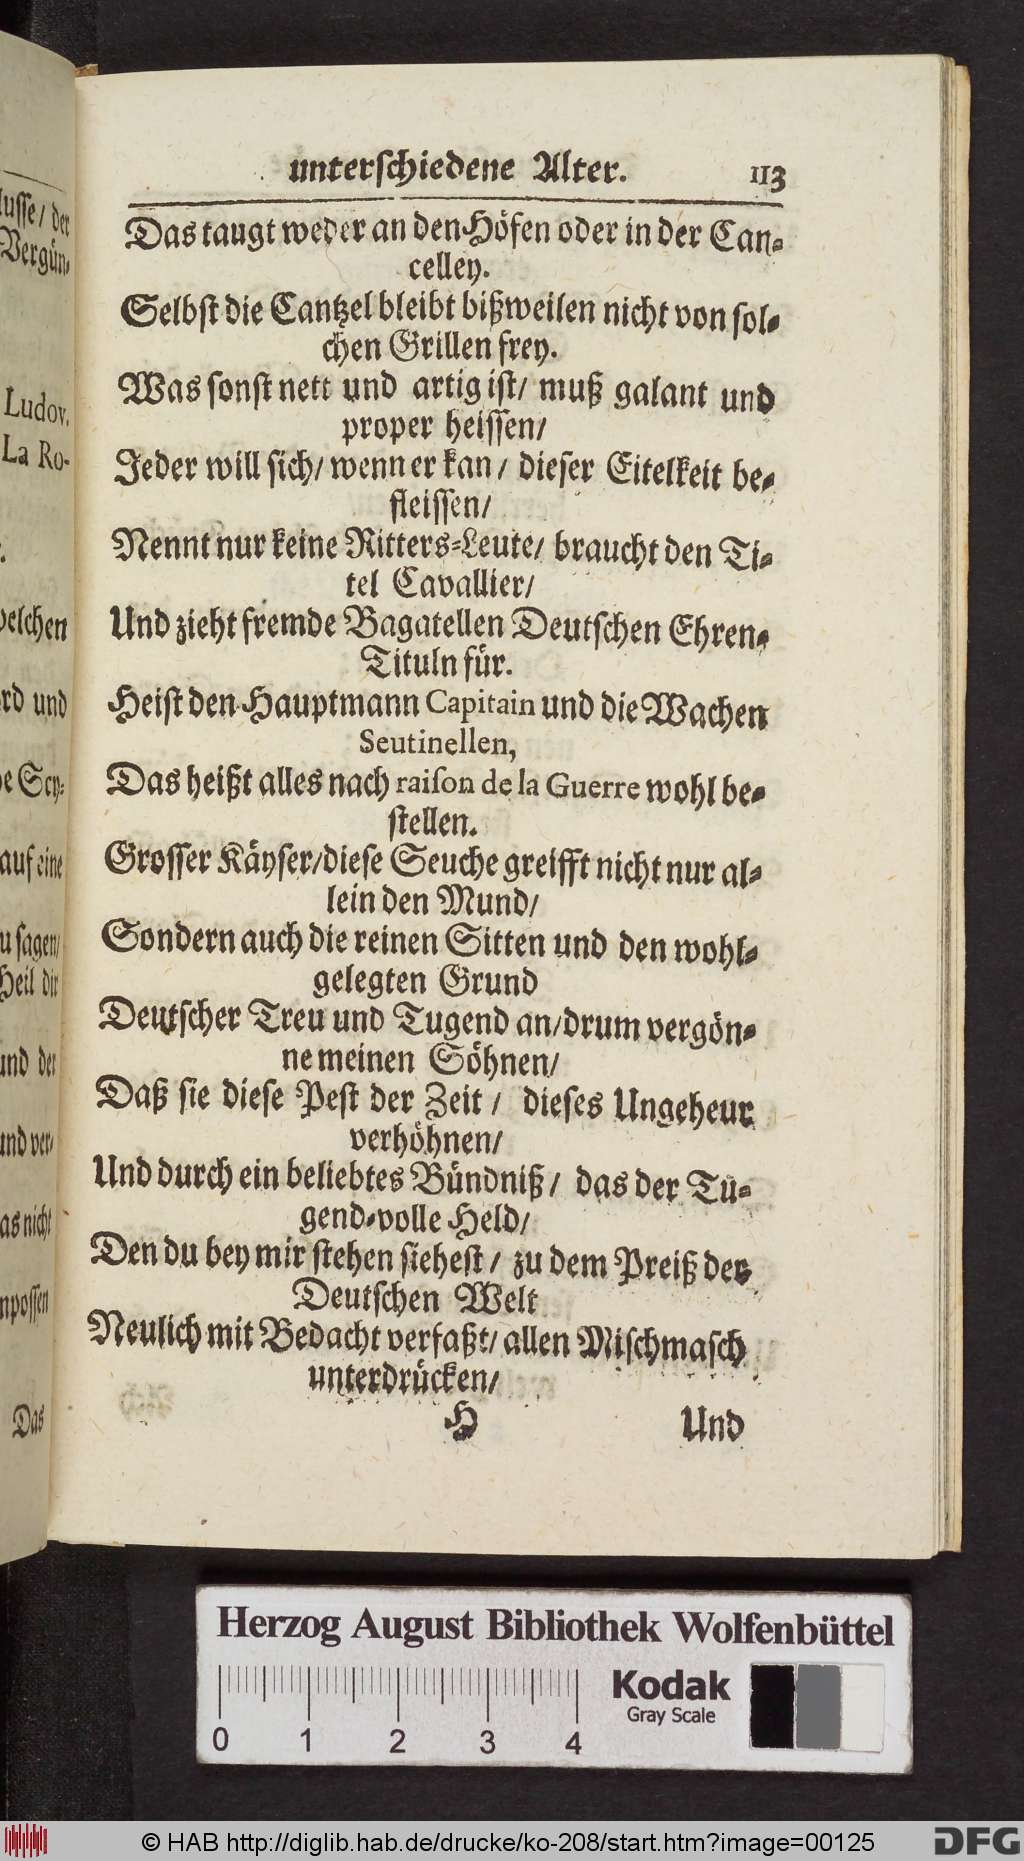 unterschiedene Alter. 113
Das taugt weder an den Höfen oder in der Can-
celley.
Selbst die Cantzel bleibt bißweilen nicht von sol-
chen Grillen frey.
Was sonst nett und artig ist/ muß galant und
proper heissen/
Jeder will sich/ wenn er kan/ dieser Eitelkeit be-
fleissen/
Nennt nur keine Ritters-Leute/ braucht den Ti-
tel Cavallier/
Und zieht fremde Bagatellen Deutschen Ehren-
Tituln für.
Heist den Hauptmann Capitain und die Wachen
Seutinellen,
Das heißt alles nach raiſon de la Guerre wohl be-
stellen.
Grosser Käyser/diese Seuche greifft nicht nur al-
lein den Mund/
Sondern auch die reinen Sitten und den wohl-
gelegten Grund
Deutscher Treu und Tugend an/drum vergön-
ne meinen Söhnen/
Daß sie diese Pest der Zeit/ dieses Ungeheur
verhöhnen/
Und durch ein beliebtes Bündniß/ das der Tu-
gend-volle Held/
Den du bey mir stehen siehest/ zu dem Preiß der
Deutschen Welt
Neulich mit Bedacht verfaßt/ allen Mischmasch
unterdrücken/
H Und
Ludov.
La Ro-
welchen
und
Scy-
auf eine
sagen/
Heil dir
und der
und ver-
nicht
possen
Das
Herzog August Bibliothek Wolfenbüttel
0 1 2 3 4
Kodak
Gray Scale
© HAB http://diglib.hab.de/drucke/ko-208/start.htm?image=00125
DFG